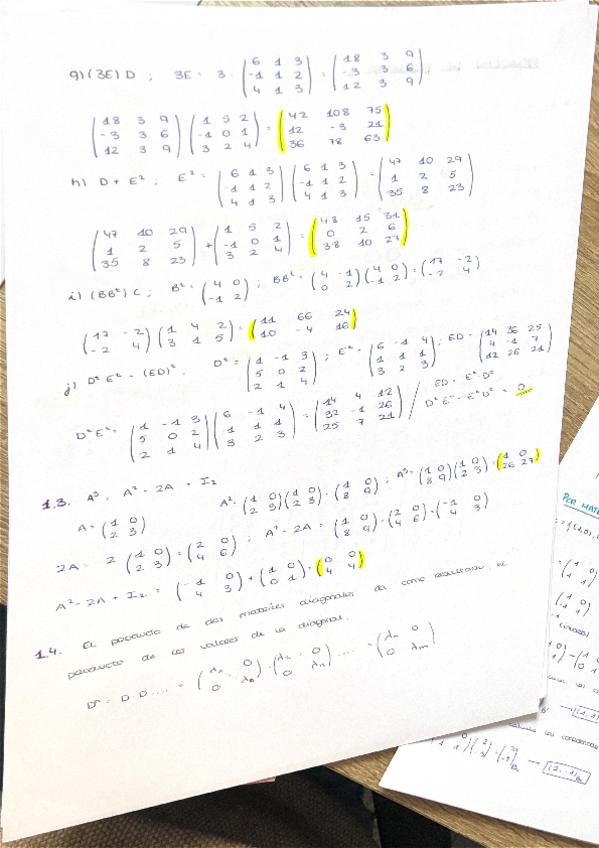 g) (3E) D ; 3E = 3 · (6 1 3 / -1 1 2 / 4 1 3) = (18 3 9 / -3 3 6 / 12 3 9)
(18 3 9 / -3 3 6 / 12 3 9) (1 5 2 / -1 0 1 / 3 2 4) = (42 108 75 / 12 -3 21 / 36 78 63)
h) D + E² ; E² = (6 1 3 / -1 1 2 / 4 1 3) (6 1 3 / -1 1 2 / 4 1 3) = (47 10 29 / 1 2 5 / 35 8 23)
(47 10 29 / 1 2 5 / 35 8 23) + (1 5 2 / -1 0 1 / 3 2 4) = (48 15 31 / 0 2 6 / 38 10 27)
i) (BBᵗ) C ; Bᵗ = (4 0 / -1 2) ; BBᵗ = (4 -1 / 0 2) (4 0 / -1 2) = (17 -2 / -2 4)
(17 -2 / -2 4) (1 4 2 / 3 1 5) = (11 66 24 / 10 -4 16)
j) DᵗEᵗ - (ED)ᵗ Dᵗ = (1 -1 3 / 5 0 2 / 2 1 4) ; Eᵗ = (6 -1 4 / 1 1 1 / 3 2 3) ; ED = (14 36 25 / 4 -1 7 / 12 26 21)
DᵗEᵗ = (1 -1 3 / 5 0 2 / 2 1 4) (6 -1 4 / 1 1 1 / 3 2 3) = (14 4 12 / 32 -1 26 / 25 7 21) / ED = EᵗDᵗ
DᵗEᵗ - EᵗDᵗ = 0
1.3. A³, A² - 2A + I₂
A = (1 0 / 2 3) A² = (1 0 / 2 3) (1 0 / 2 3) = (1 0 / 8 9) ; A³ = (1 0 / 8 9) (1 0 / 2 3) = (1 0 / 26 27)
2A = 2 (1 0 / 2 3) = (2 0 / 4 6) ; A² - 2A = (1 0 / 8 9) - (2 0 / 4 6) = (-1 0 / 4 3)
A² - 2A + I₂ = (-1 0 / 4 3) + (1 0 / 0 1) = (0 0 / 4 4)
1.4. El producto de dos matrices diagonales da como resultado el
producto de los valores de la diagonal.
Dⁿ = D · D ... =
POR MATR